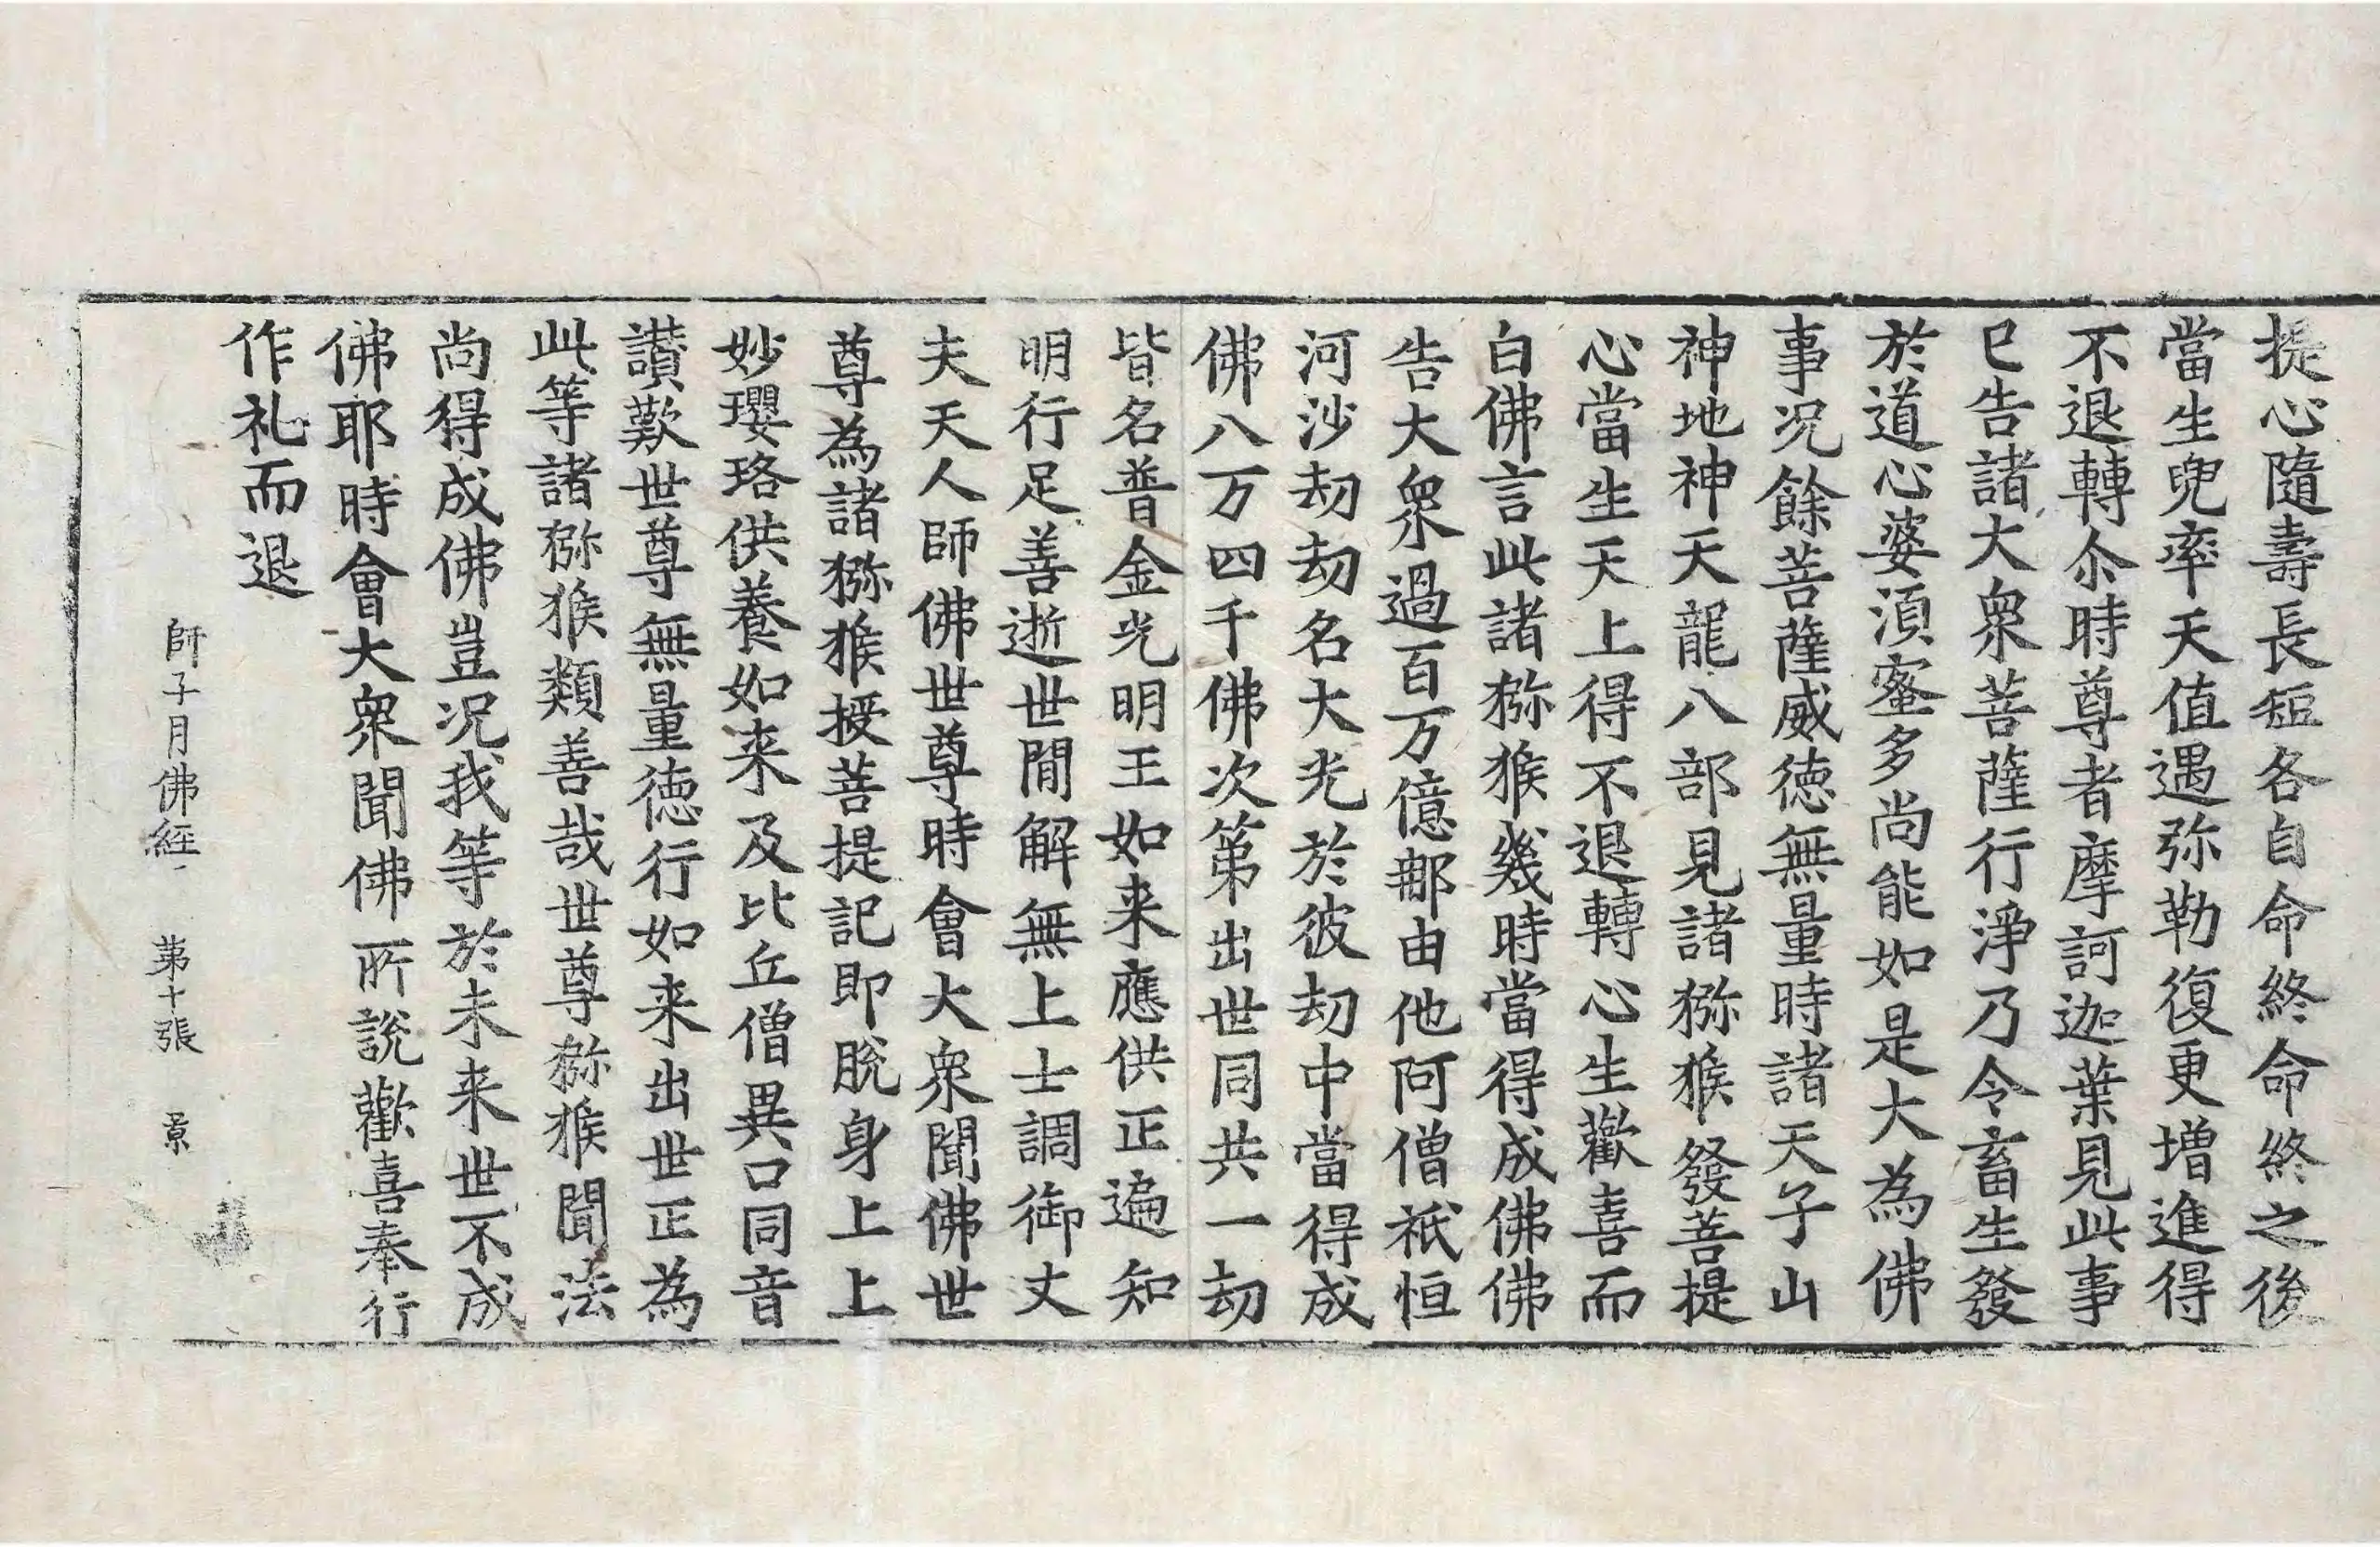 提心隨壽長短各自命終命終之後
當生兜率天值遇弥勒復更增進得
不退轉尒時尊者摩訶迦葉見此事
已告諸大衆菩薩行淨乃令畜生發
於道心婆湏蜜多尚能如是大為佛
事况餘菩薩威德無量時諸天子山
神地神天龍八部見諸猕猴發菩提
心當生天上得不退轉心生歡喜而
白佛言此諸猕猴幾時當得成佛佛
告大衆過百万億郍由他阿僧祇恒
河沙劫劫名大光於彼劫中當得成
佛八万四千佛次第出世同共一劫
皆名普金光明王如来應供正遍知
明行足善逝世間解無上士調御丈
夫天人師佛世尊時會大衆聞佛世
尊為諸猕猴授菩提記即脫身上上
妙瓔珞供養如来及比丘僧異口同音
讃歎世尊無量德行如来出世正為
此等諸猕猴類善哉世尊猕猴聞法
尚得成佛豈况我等於未来世不成
佛耶時會大衆聞佛所說歡喜奉行
作礼而退
師子月佛經 第十張 景